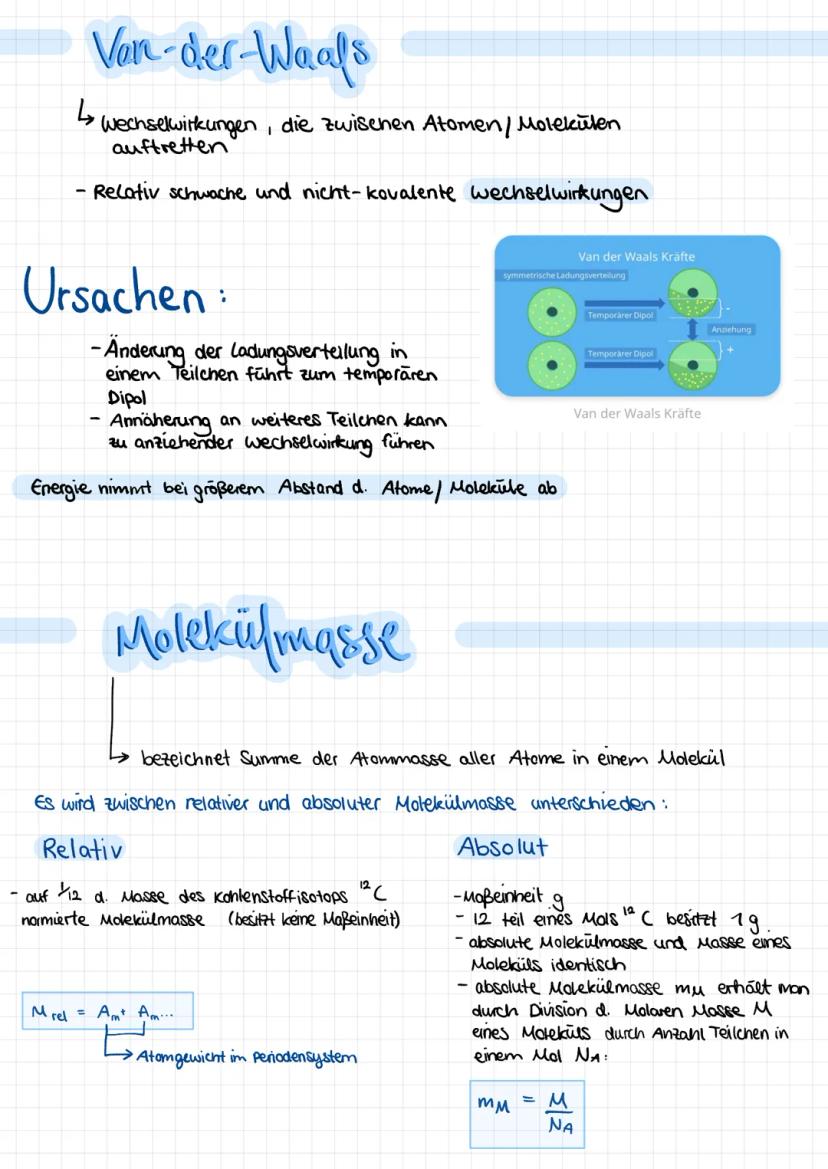 Van-der-Waals
↳ Wechselwirkungen, die zwischen Atomen/Molekülen
auftretten
- Relativ schwache und nicht-kovalente Wechselwirkungen
Ursachen:
- Änderung der Ladungsverteilung in
einem Teilchen führt zum temporären
Dipol
- Annäherung an weiteres Teilchen kann
zu anziehender Wechselwirkung führen
Van der Waals Kräfte
symmetrische Ladungsverteilung
Temporärer Dipol
-
Anziehung
Temporärer Dipol
+
Van der Waals Kräfte
Energie nimmt bei größerem Abstand d. Atome/Moleküle ab
Molekülmasse
↳ bezeichnet Summe der Atommasse aller Atome in einem Molekül
Es wird zwischen relativer und absoluter Molekülmasse unterschieden:
Relativ
- auf 1/12 d. Masse des Kohlenstoffisotops ¹²C
normierte Molekülmasse (besitzt keine Maßeinheit)
M rel = Am + Am...
↳ Atomgewicht im Periodensystem
Absolut
- Maßeinheit g
- 12 teil eines Mols ¹²C besitzt 1g
- absolute Molekülmasse und Masse eines
Moleküls identisch
- absolute Molekülmasse mM erhält man
durch Division d. Molaren Masse M
eines Moleküls durch Anzahl Teilchen in
einem Mol NA:
mM = M
NA